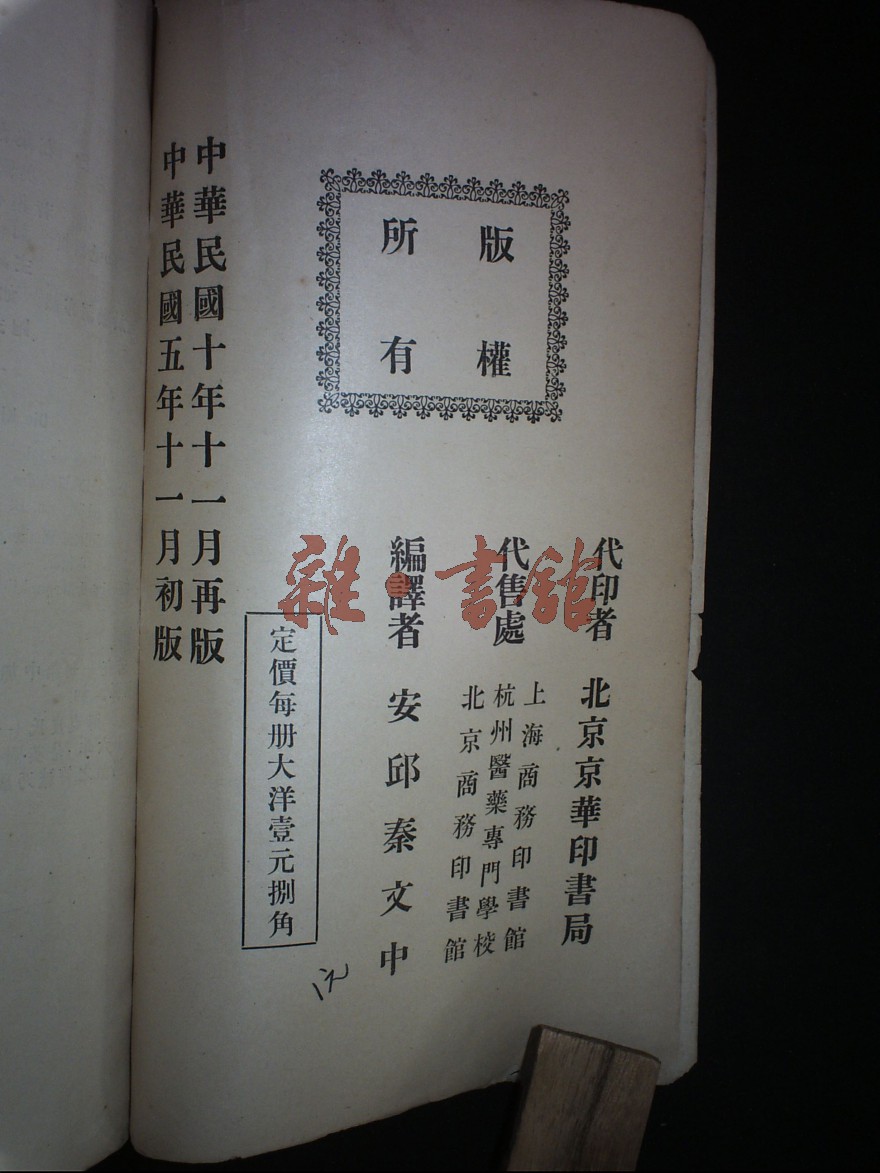 版權
所有
代印者　北京京華印書局
代售處
上海商務印書館
杭州醫藥專門學校
北京商務印書館
編譯者　安邱秦文中
定價每册大洋壹元捌角
中華民國十年十一月再版
中華民國五年十一月初版
雜·書館